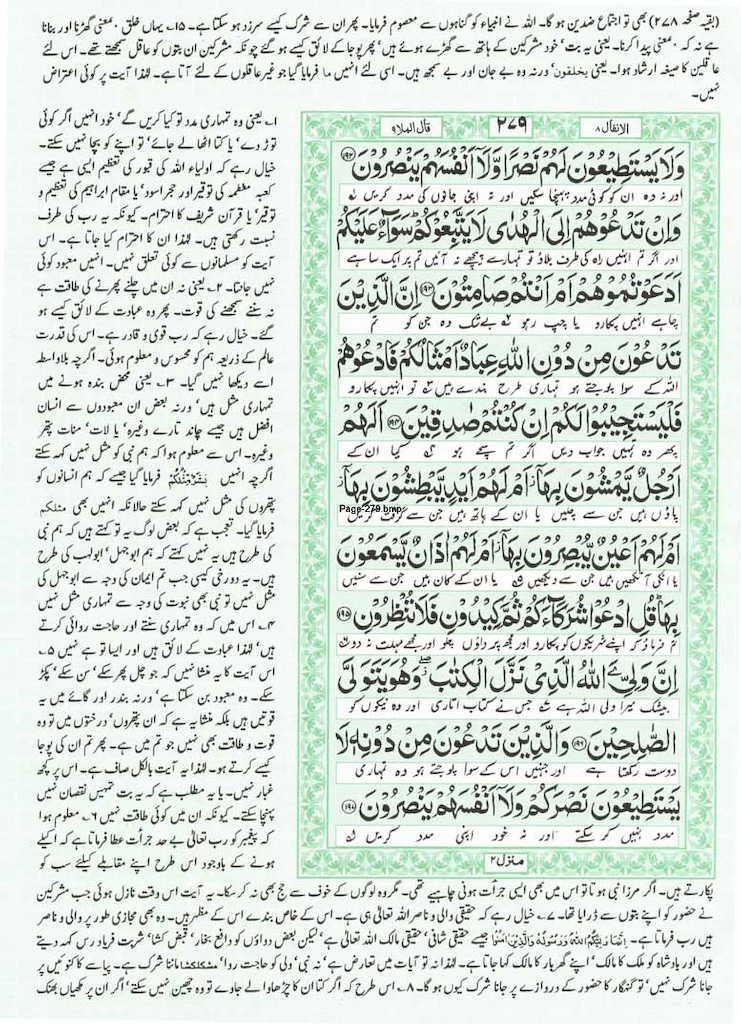 (بقیہ صفحہ ۲۷۸) بھی تو اجتماع ضدین ہو گا۔ اللہ نے انبیاء کو گناہوں سے معصوم فرمایا۔ پھر ان سے شرک کیسے سرزد ہو سکتا ہے۔ ۱۵۔ یہاں خلق ، بمعنی گھڑنا اور بنانا
ہے نہ کہ ، بمعنی پیدا کرنا۔ یعنی یہ بت' خود مشرکین کے ہاتھ سے گھڑے ہوئے ہیں' پھر پوجا کے لائق کیسے ہو گئے چونکہ مشرکین ان بتوں کو عاقل سمجھتے تھے۔ اس لئے
عاقلین کا صیغہ ارشاد ہوا۔ یعنی یخلقون' ورنہ وہ بے جان اور بے سمجھ ہیں۔ اسی لئے انہیں ما فرمایا گیا جو غیر عاقلوں کے لئے آتا ہے۔ لہٰذا آیت پر کوئی اعتراض
نہیں۔
الانفال ۸
۲۷۹
قال الملاء ۹
وَلَا يَسْتَطِيعُوْنَ لَهُمْ نَصْرًا وَّلَآ اَنْفُسَهُمْ يَنْصُرُوْنَ ۱۹۲
اور نہ وہ ان کو کوئی مدد پہنچا سکیں اور نہ اپنی جانوں کی مدد کریں
وَاِنْ تَدْعُوْهُمْ اِلَى الْهُدٰى لَا يَتَّبِعُوْكُمْ سَوَآءٌ عَلَيْكُمْ
اور اگر تم انہیں راہ کی طرف بلاؤ تو تمہارے پیچھے نہ آئیں تم پر ایک سا ہے
اَدَعَوْتُمُوْهُمْ اَمْ اَنْتُمْ صَامِتُوْنَ ۱۹۳ اِنَّ الَّذِيْنَ
چاہے انہیں پکارو یا چپ رہو بے شک وہ جن کو تم
تَدْعُوْنَ مِنْ دُوْنِ اللّٰهِ عِبَادٌ اَمْثَالُكُمْ فَادْعُوْهُمْ
اللہ کے سوا پوجتے ہو تمہاری طرح بندے ہیں تو انہیں پکارو
فَلْيَسْتَجِيْبُوْا لَكُمْ اِنْ كُنْتُمْ صٰدِقِيْنَ ۱۹۴ اَلَهُمْ
پھر وہ تمہیں جواب دیں اگر تم سچے ہو کیا ان کے
اَرْجُلٌ يَّمْشُوْنَ بِهَآ اَمْ لَهُمْ اَيْدٍ يَّبْطِشُوْنَ بِهَآ
پاؤں ہیں جن سے چلیں یا ان کے ہاتھ ہیں جن سے گرفت کریں
Page-279.bmp
اَمْ لَهُمْ اَعْيُنٌ يُّبْصِرُوْنَ بِهَآ اَمْ لَهُمْ اٰذَانٌ يَّسْمَعُوْنَ
یا انکی آنکھیں ہیں جن سے دیکھیں یا ان کے کان ہیں جن سے سنیں
بِهَا قُلِ ادْعُوْا شُرَكَآءَكُمْ ثُمَّ كِيْدُوْنِ فَلَا تُنْظِرُوْنِ ۱۹۵
تم فرماؤ کہ اپنے شریکوں کو پکارو اور مجھ پر داؤں چلو اور مجھے مہلت نہ دو
اِنَّ وَلِيِّ ےَ اللّٰهُ الَّذِيْ نَزَّلَ الْكِتٰبَ وَهُوَ يَتَوَلَّى
بیشک میرا ولی اللہ ہے جس نے کتاب اتاری اور وہ نیکوں کو
الصّٰلِحِيْنَ ۱۹۶ وَالَّذِيْنَ تَدْعُوْنَ مِنْ دُوْنِهٖ لَا
دوست رکھتا ہے اور جنہیں اس کے سوا پوجتے ہو وہ تمہاری
يَسْتَطِيْعُوْنَ نَصْرَكُمْ وَلَآ اَنْفُسَهُمْ يَنْصُرُوْنَ ۱۹۷
مدد نہیں کر سکتے اور نہ خود اپنی مدد کریں
منزل ۲
۱۔ یعنی وہ تمہاری مدد تو کیا کریں گے' خود انہیں اگر کوئی
توڑ دے' یا کتا اٹھا لے جائے' تو اپنے کو بچا نہیں سکتے۔
خیال رہے کہ اولیاء اللہ کی قبور کی تعظیم ایسی ہے جیسے
کعبہ معظمہ کی توقیر اور حجر اسود' یا مقام ابراہیم کی تعظیم و
توقیر' یا قرآن شریف کا احترام۔ کیونکہ یہ رب کی طرف
نسبت رکھتی ہیں۔ لہٰذا ان کا احترام کیا جاتا ہے۔ اس
آیت کو مسلمانوں سے کوئی تعلق نہیں۔ انہیں معبود کوئی
نہیں جانتا۔ ۲۔ یعنی نہ ان میں چلنے پھرنے کی طاقت ہے
نہ سننے سمجھنے کی قوت۔ پھر وہ عبادت کے لائق کیسے ہو
گئے۔ خیال رہے کہ رب قوی و قادر ہے۔ اس کی قدرت
عالم کے ذریعہ ہم کو محسوس و معلوم ہوئی۔ اگرچہ بلاواسطہ
اسے دیکھا نہیں گیا۔ ۳۔ یعنی محض بندہ ہونے میں
تمہاری مثل ہیں' ورنہ بعض ان معبودوں سے انسان
افضل ہیں جیسے چاند تارے وغیرہ' یا لات' منات پتھر
وغیرہ۔ اس سے معلوم ہوا کہ ہم نبی کو مثل نہیں کہہ سکتے
اگرچہ انہیں بَشَرٌ مِّثْلُكُمْ فرمایا گیا جیسے کہ ہم انسانوں کو
پتھروں کی مثل نہیں کہہ سکتے حالانکہ انہیں بھی مثلکم
فرمایا گیا۔ تعجب ہے کہ بعض لوگ یہ تو کہتے ہیں کہ ہم نبی
کی طرح ہیں یہ نہیں کہتے کہ ہم ابوجہل' ابولہب کی طرح
ہیں۔ یہ دورخی کیسی جب تم ایمان کی وجہ سے ابوجہل کی
مثل نہیں تو نبی بھی نبوت کی وجہ سے تمہاری مثل نہیں
۴۔ اس میں کہ وہ تمہاری سنتے اور حاجت روائی کرتے
ہیں' لہٰذا عبادت کے لائق ہیں اور ایسا تو ہے نہیں ۵۔
اس آیت کا یہ منشا نہیں کہ جو چل پھر سکے' سن سکے' پکڑ
سکے۔ وہ معبود بن سکتا ہے' ورنہ بندر اور گائے میں یہ
قوتیں ہیں بلکہ منشا یہ ہے کہ ان پتھروں' درختوں میں تو وہ
قوت و طاقت بھی نہیں جو تم میں ہے۔ پھر تم ان کی پوجا
کیسے کرتے ہو۔ لہٰذا یہ آیت بالکل صاف ہے۔ اس پر کچھ
غبار نہیں۔ یا یہ مطلب ہے کہ یہ بت تمہیں نقصان نہیں
پہنچا سکتے۔ کیونکہ ان میں کوئی طاقت نہیں ۶۔ معلوم ہوا
کہ پیغمبر کو رب تعالیٰ بے حد جرأت عطا فرماتا ہے کہ اکیلے
ہونے کے باوجود اس طرح اپنے مقابلے کیلئے سب کو
پکارتے ہیں۔ اگر مرزا نبی ہوتا تو اس میں بھی ایسی جرأت ہونی چاہیے تھی۔ مگر وہ لوگوں کے خوف سے حج بھی نہ کر سکا۔ یہ آیت اس وقت نازل ہوئی جب مشرکین
نے حضور کو اپنے بتوں سے ڈرایا تھا۔ ۷۔ خیال رہے کہ حقیقی والی و ناصر اللہ تعالیٰ ہی ہے۔ اس کے خاص بندے اس کے مظہر ہیں۔ وہ بھی مجازی طور پر والی و ناصر
ہیں رب فرماتا ہے۔ اِنَّمَا وَلِيُّكُمُ اللّٰهُ وَرَسُوْلُهٗ وَالَّذِيْنَ اٰمَنُوْا جیسے حقیقی شافی' حقیقی مالک اللہ تعالیٰ ہے' لیکن بعض دواؤں کو دافع بخار' قبض کشا' شربت فریاد رس کہہ دیتے
ہیں اور بادشاہ کو ملک کا مالک' اپنے گھر بار کا مالک کہا جاتا ہے۔ لہٰذا نہ تو آیات میں تعارض ہے' نہ نبی' ولی کو حاجت روا' مشکلکشا ماننا شرک ہے۔ پیاسے کا کنوئیں پر
جانا شرک نہیں' تو گنہگار کا حضور کے دروازے پر جانا شرک کیوں ہو گا۔ ۸۔ اس طرح کہ اگر کتا ان کا چڑھاوا لے جاوے تو وہ چھین نہیں سکتے' اگر ان پر مکھیاں بھنک